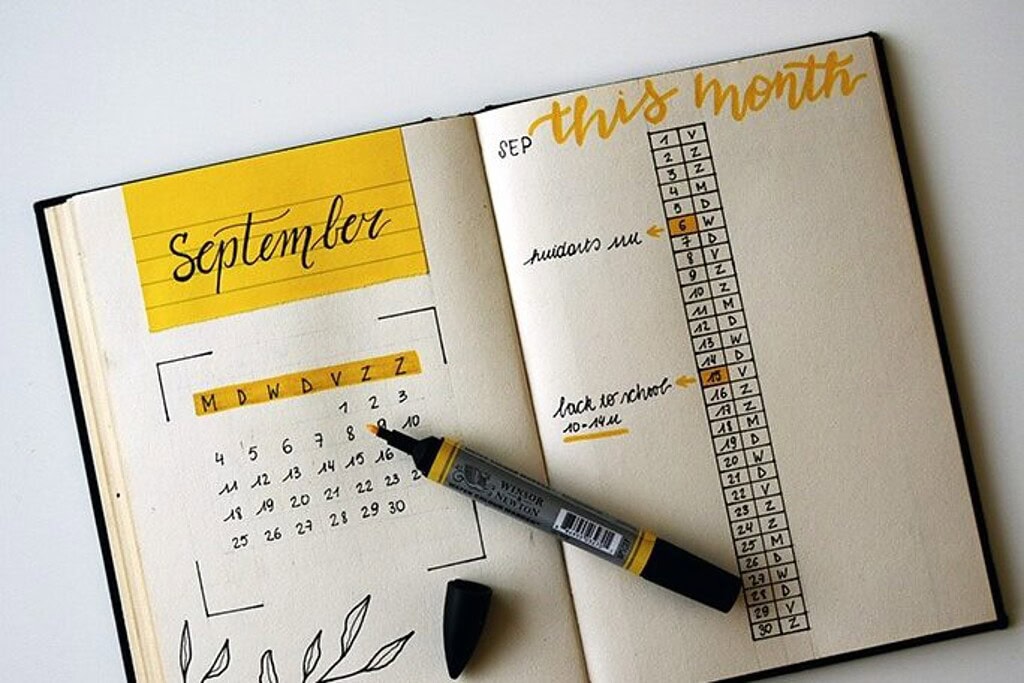 September
M D W D V Z Z
1 2 3
4 5 6 7 8 9 10
11 12 13 14 15 16
18 19 20 21 22 23
25 26 27 28 29 30
this month
SEP
1 V
2 Z
3 Z
4 M
5 D
6 W
7 D
8 V
9 Z
10 Z
11 M
12 D
13 W
14 D
15 V
16 Z
17 Z
18 M
19 D
20 W
21 D
22 V
23 Z
24 Z
25 M
26 D
27 W
28 D
29 V
30 Z
back to school
10-14u
WINSOR
&
NEWTON